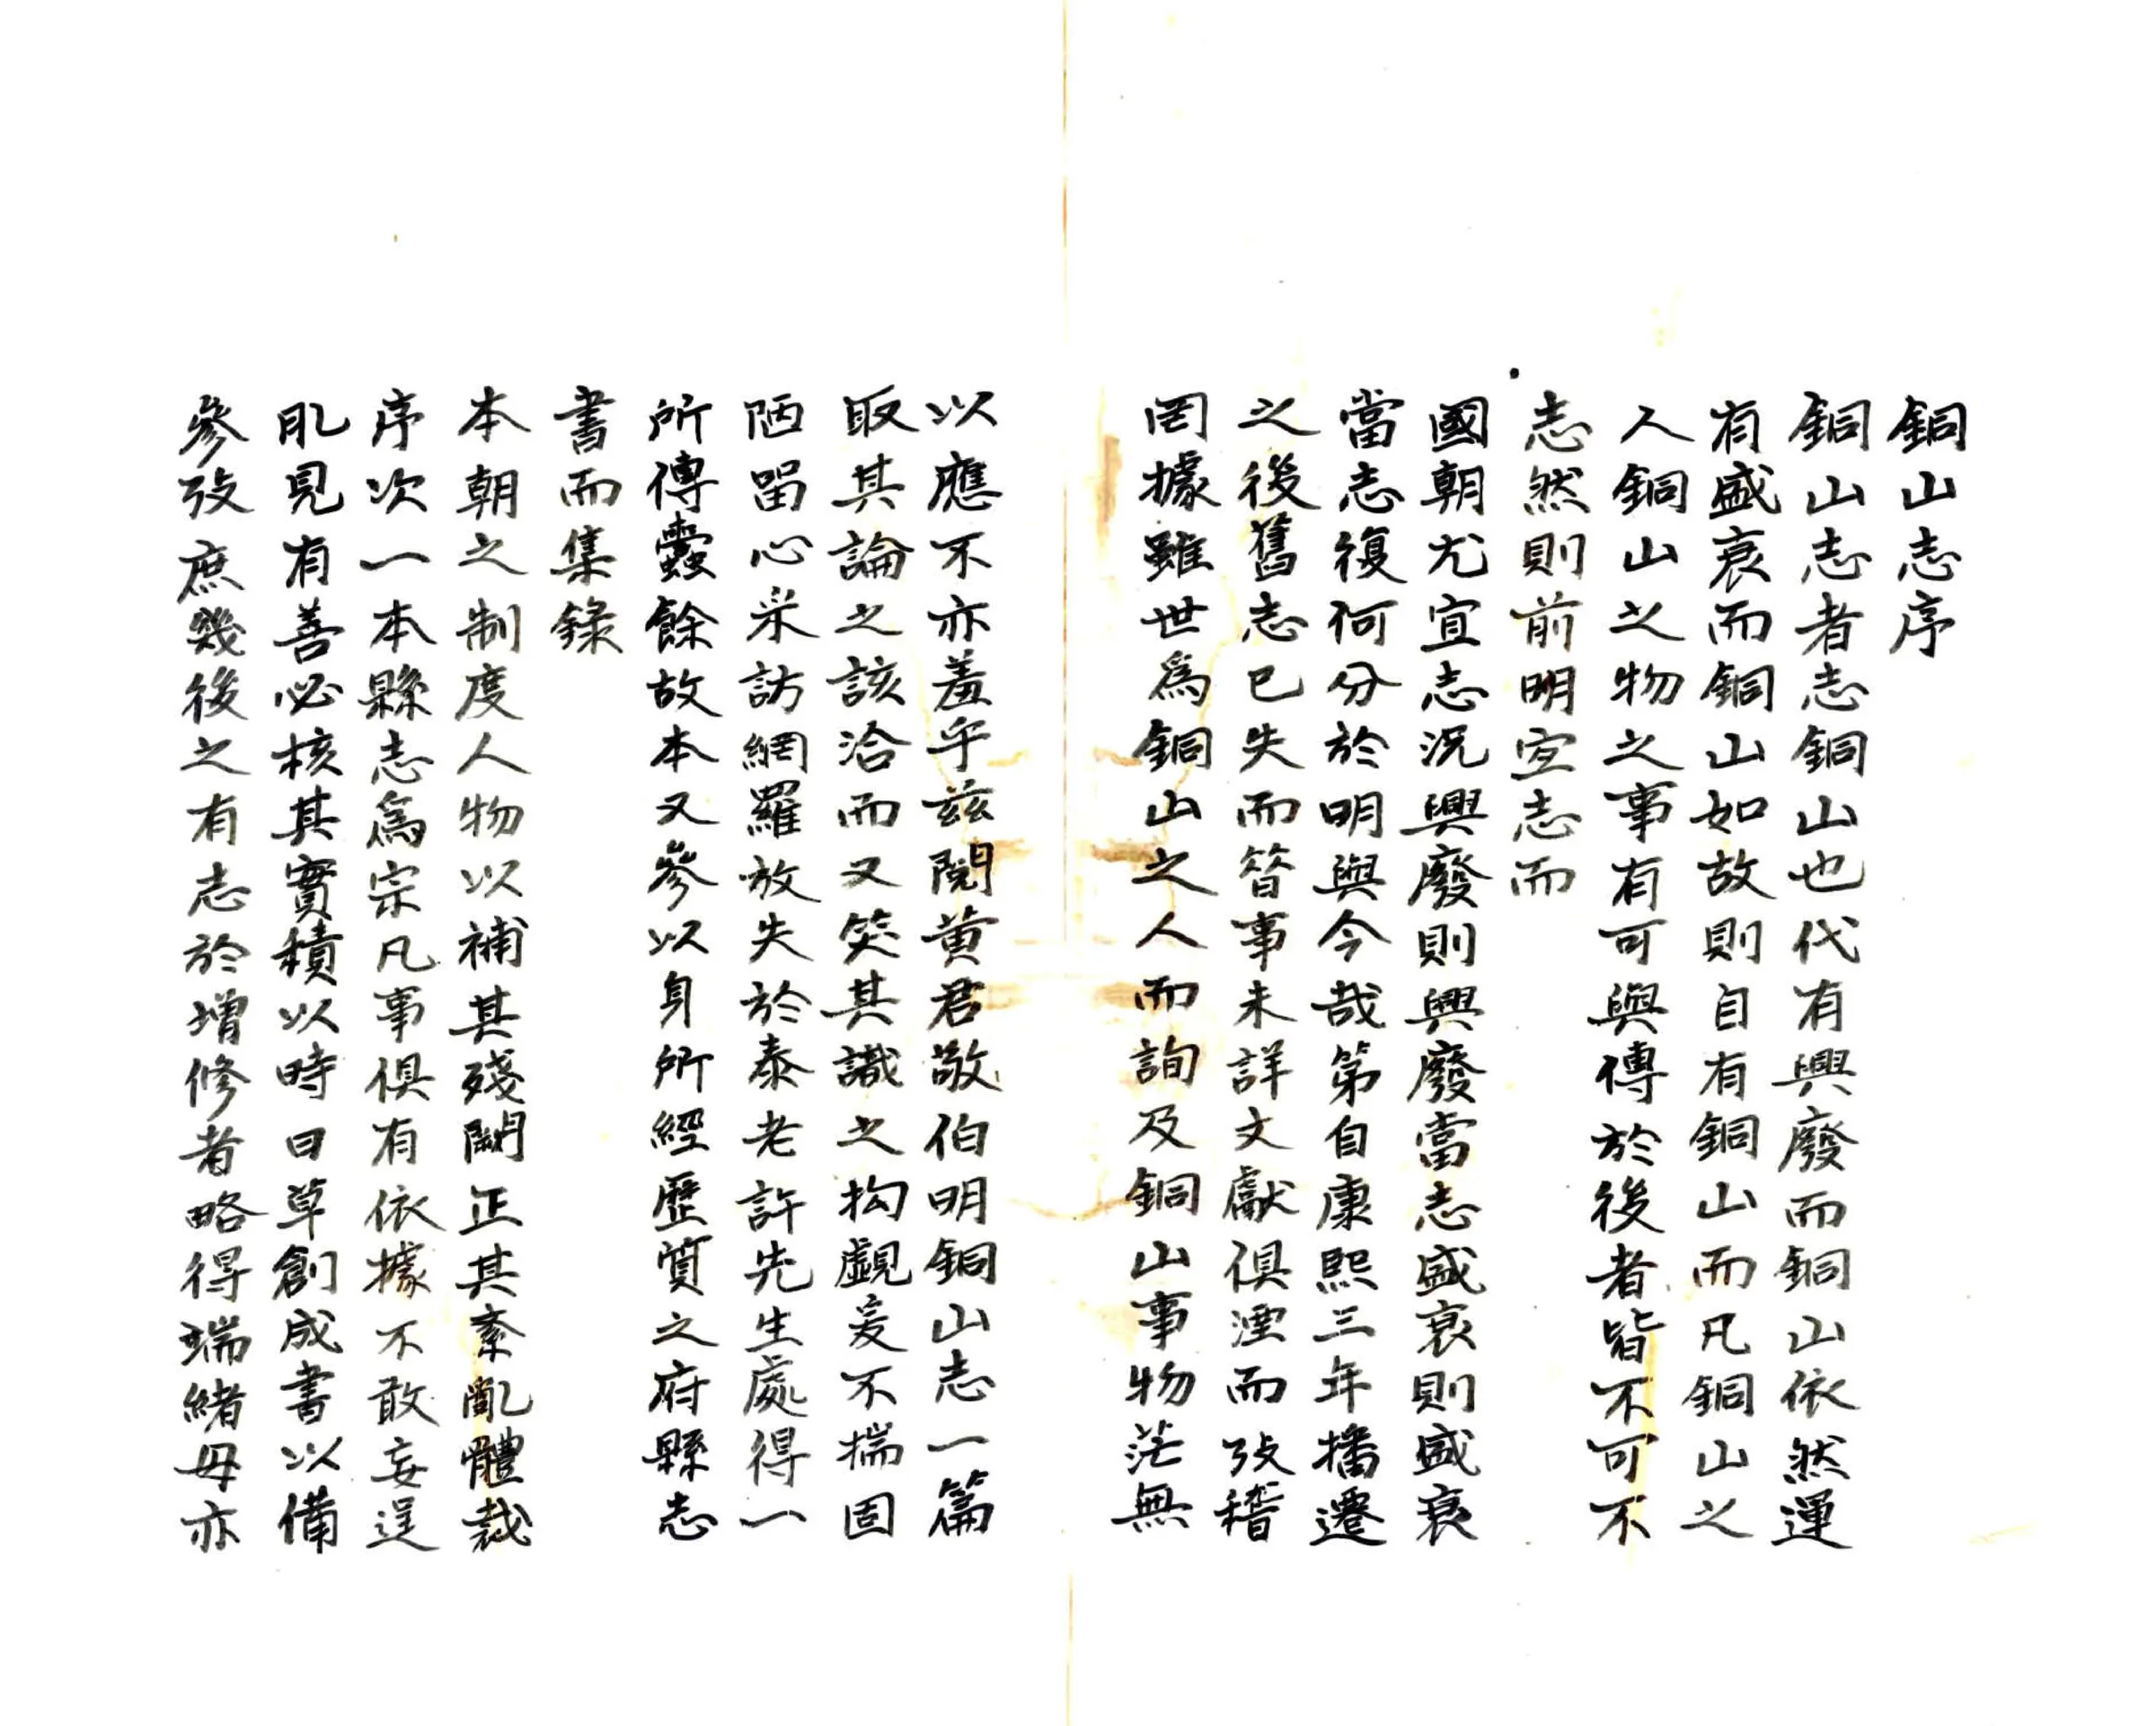 銅山志序
銅山志者志銅山也代有興廢而銅山依然運
有盛衰而銅山如故則自有銅山而凡銅山之
人銅山之物之事有可與傳於後者皆不可不
志然則前明宜志而
國朝尤宜志況興廢則興廢當志盛衰則盛衰
當志復何分於明與今哉第自康熙三年播遷
之後舊志已失而昝事未詳文獻俱湮而攷稽
罔據雖世爲銅山之人而詢及銅山事物茫無
以應不亦羞乎兹閱黄君敬伯明銅山志一篇
取其論之該洽而又笑其識之拘覷爰不揣固
陋留心采訪網羅放失於泰老許先生處得一
所傳蠹餘故本又參以身所經歷質之府縣志
書而集錄
本朝之制度人物以補其殘闕正其紊亂體裁
序次一本縣志爲宗凡事俱有依據不敢妄逞
肊見有善必核其實積以時日草創成書以備
參攷庶幾後之有志於增修者略得端緒毋亦